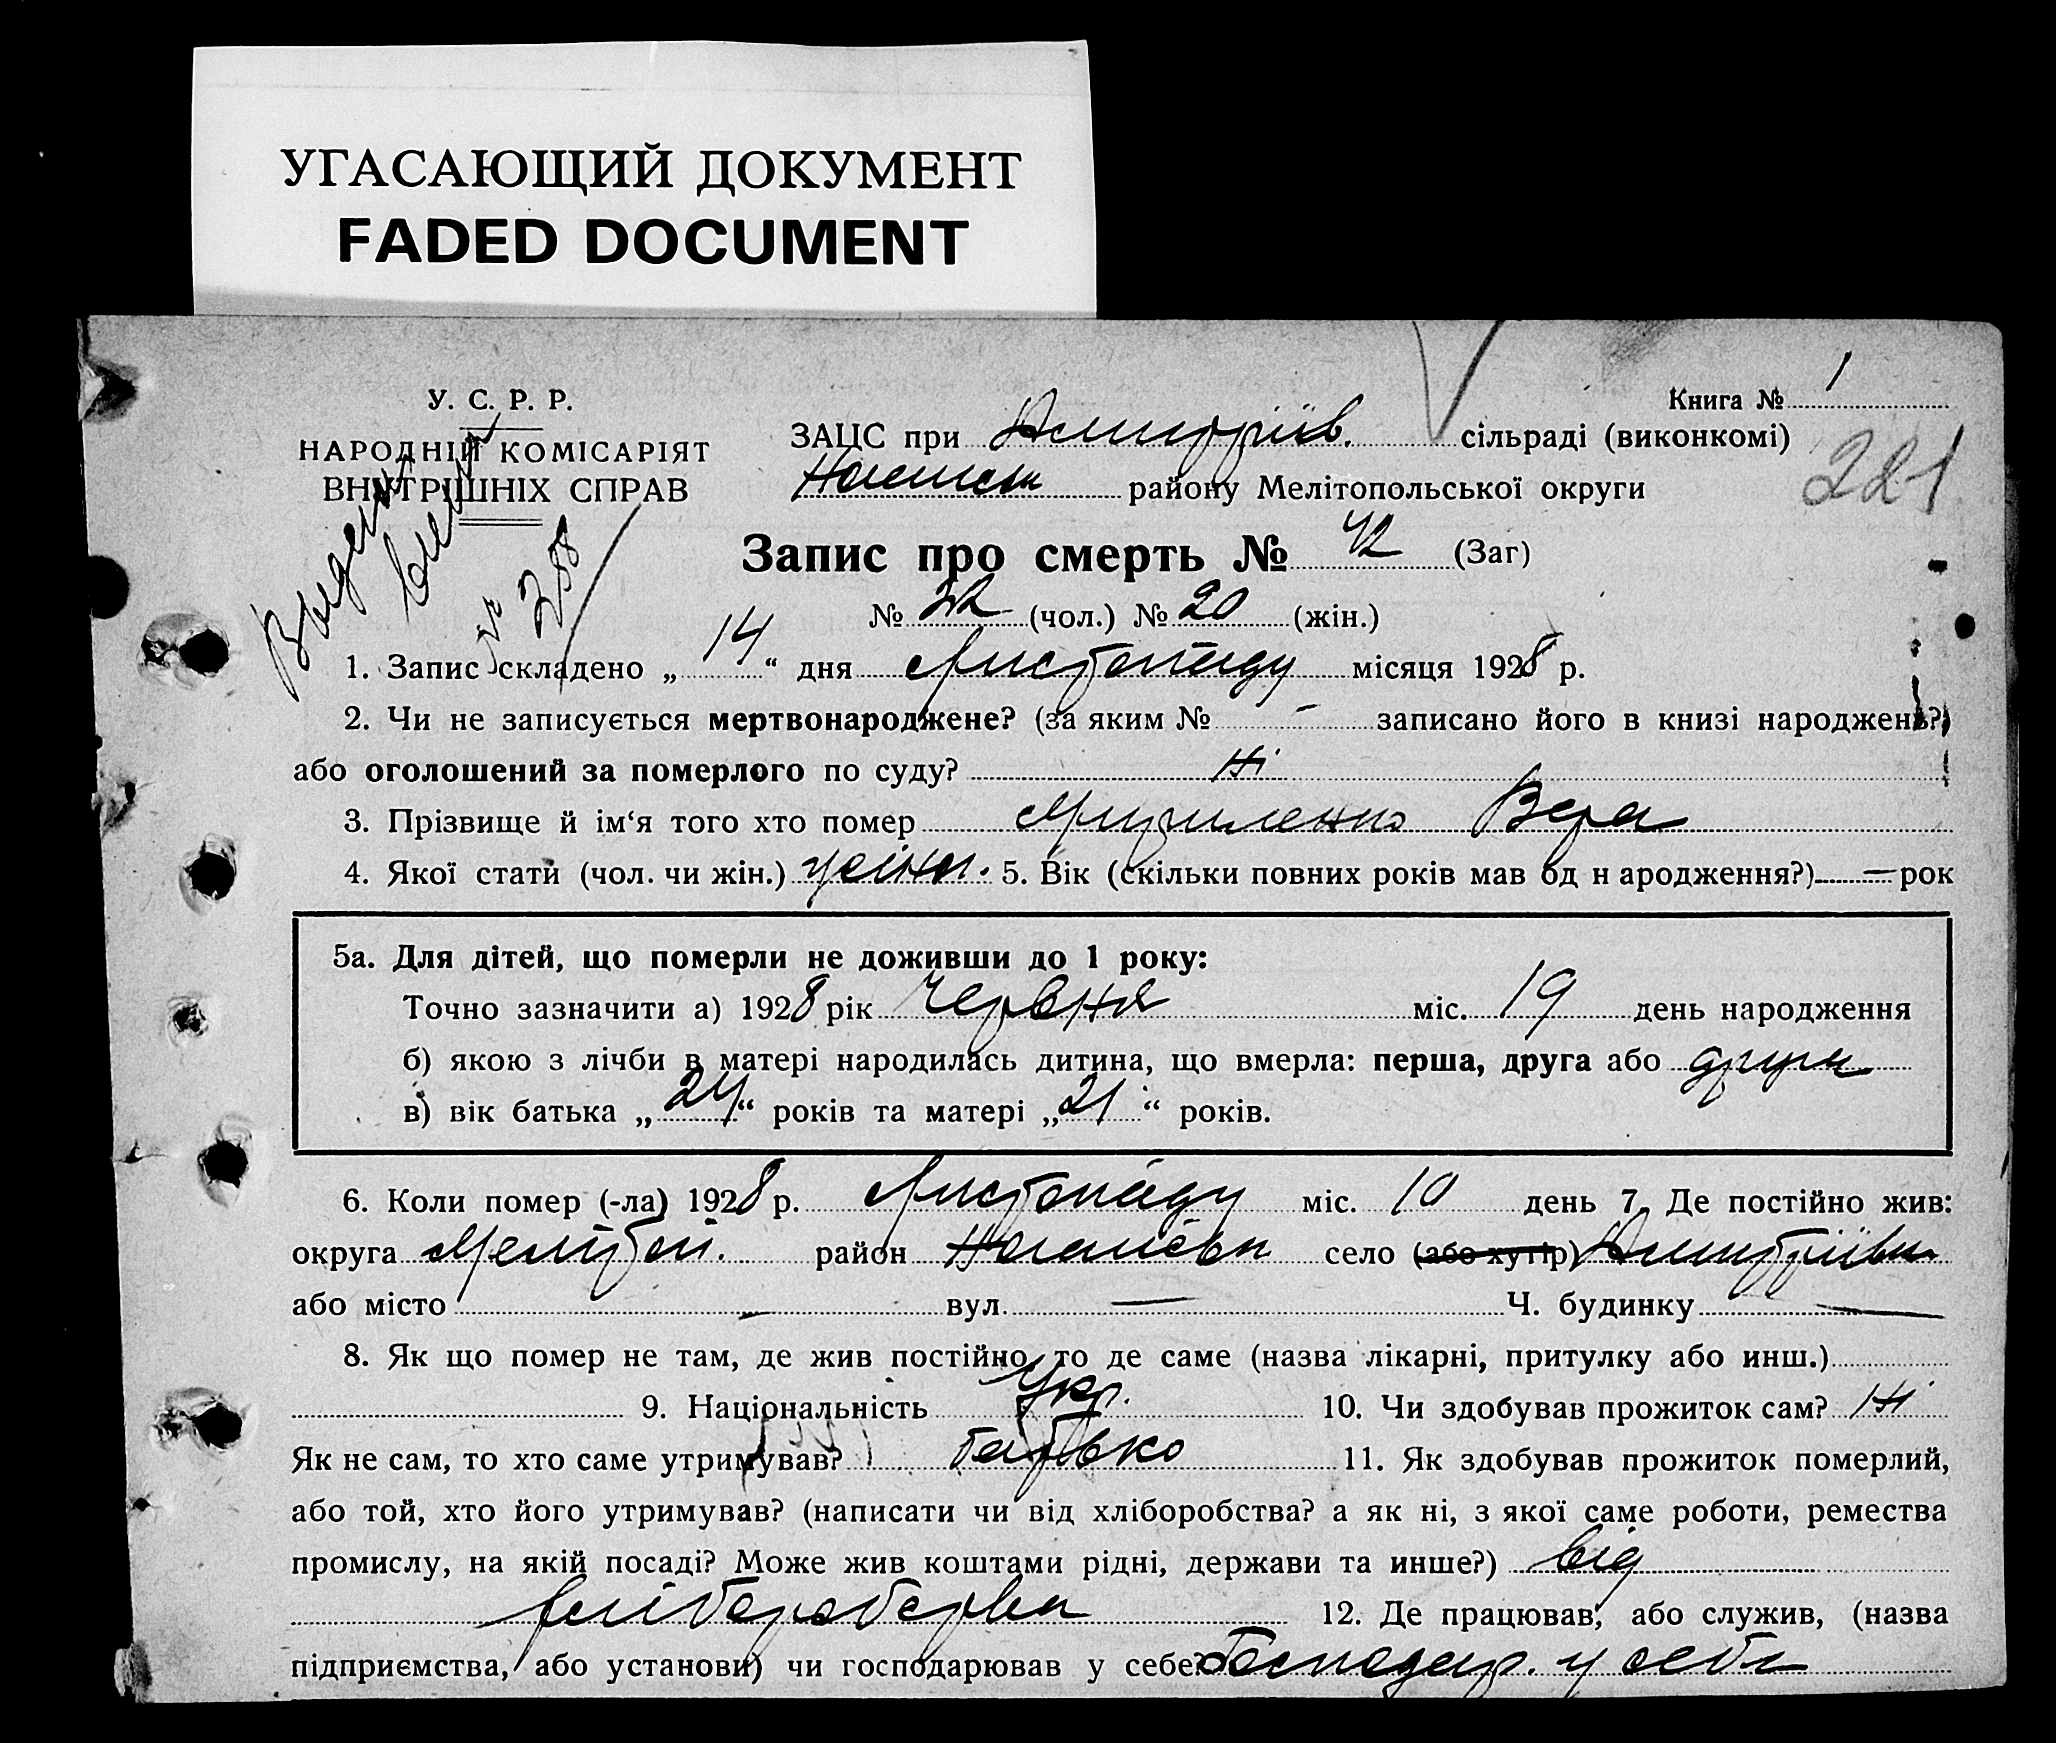 УГАСАЮЩИЙ ДОКУМЕНТ
FADED DOCUMENT
Книга № 1
У. С. Р. Р.
НАРОДНІЙ КОМІСАРІЯТ
ВНУТРІШНІХ СПРАВ
ЗАЦС при Дмитріїв. сільраді (виконкомі)
району Мелітопольської округи
221
288
Запис про смерть № 42 (Заг)
№ 22 (чол.) № 20 (жін.)
1. Запис складено „ 14 “ дня Листопаду місяця 1928 р.
2. Чи не записується мертвонароджене? (за яким № - записано його в книзі народжень?)
або оголошений за померлого по суду? Ні
3. Прізвище й ім‘я того хто помер Вера
4. Якої стати (чол. чи жін.) жіноч. 5. Вік (скільки повних років мав од н ародження?) — рок
5а. Для дітей, що померли не доживши до 1 року:
Точно зазначити а) 1928 рік Червня міс. 19 день народження
б) якою з лічби в матері народилась дитина, що вмерла: перша, друга або друга
в) вік батька „ 24 “ років та матері „ 21 “ років.
6. Коли помер (-ла) 1928 р. Листопаду міс. 10 день 7. Де постійно жив:
округа Мелітоп. район Ногайськ село (або хутір) Дмитріївка
або місто — вул. — Ч. будинку —
8. Як що помер не там, де жив постійно, то де саме (назва лікарні, притулку або инш.)
9. Національність Укр. 10. Чи здобував прожиток сам? Ні
Як не сам, то хто саме утримував? батько 11. Як здобував прожиток померлий,
або той, хто його утримував? (написати чи від хліборобства? а як ні, з якої саме роботи, ремества
промислу, на якій посаді? Може жив коштами рідні, держави та инше?) від
хліборобства 12. Де працював, або служив, (назва
підприємства, або установи) чи господарював у себе? Господар. у себе